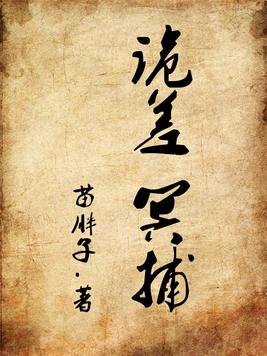 诡差冥捕
苗胖子·著